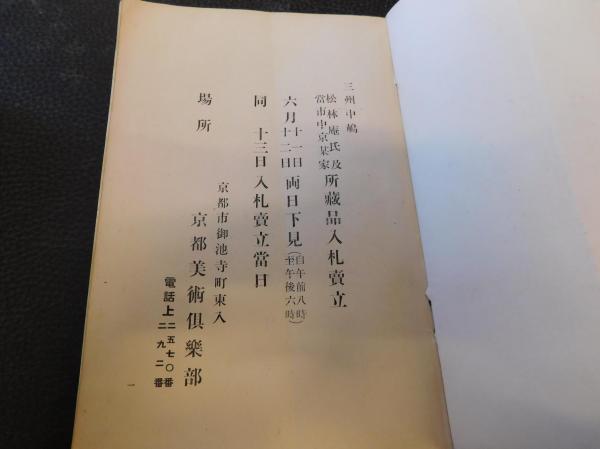 三州中嶋
松林庵氏及
當市中京某家
所藏品入札賣立
六月十一日
十二日
両日下見
(自午前八時
至午後六時)
同 十三日入札賣立當日
場所
京都市御池寺町東入
京都美術倶樂部
電話上二五七〇番
二九二番
一